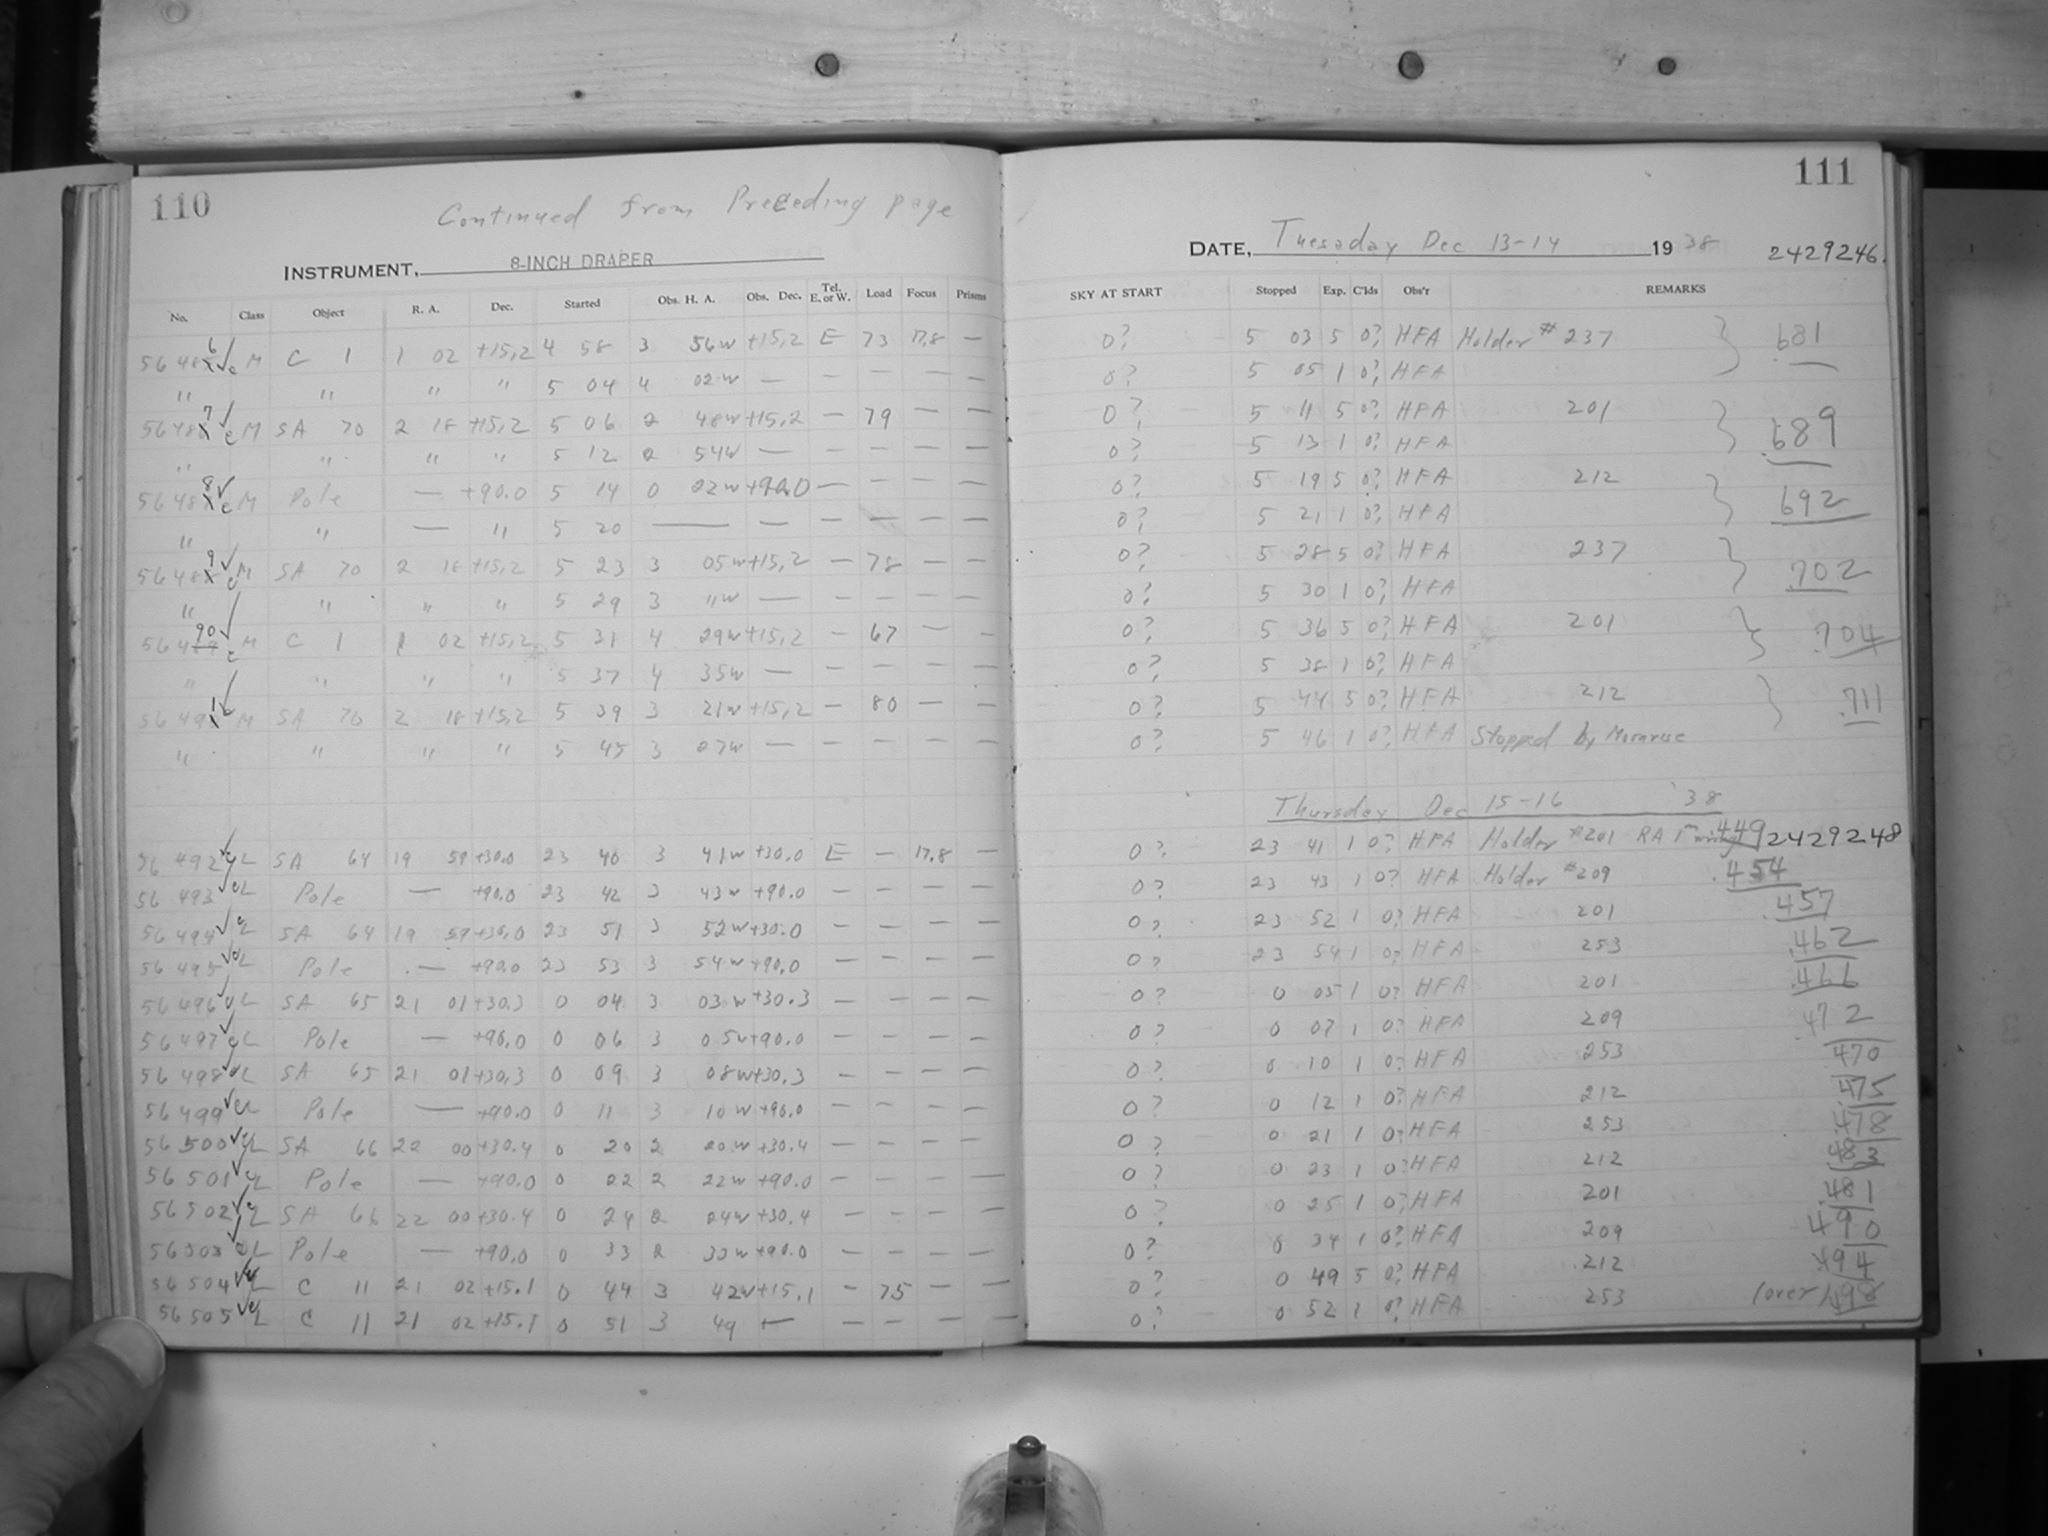 110
111
Continued from Preceding page
INSTRUMENT, 8-INCH DRAPER
DATE, Tuesday Dec 13-14 1938 2429246.
No. Class Object R. A. Dec. Started Obs. H. A. Obs. Dec. Tel. E. or W. Load Focus Prisms SKY AT START Stopped Exp. C'lds Obs'r REMARKS
56486 c M C 1 1 02 +15,2 4 58 3 56w +15,2 E 73 17,8 — 0? 5 03 5 0? HFA Holder # 237 .681
" " " " 5 04 4 02w — — — — — 0? 5 05 1 0? HFA
56487 c M SA 70 2 18 +15,2 5 06 2 48w +15,2 — 79 — — 0? 5 11 5 0? HFA 201 .689
" " " " 5 12 2 54w — — — — — 0? 5 13 1 0? HFA
56488 c M Pole — +90.0 5 14 0 02w +90.0 — — — — 0? 5 19 5 0? HFA 212 .692
" " — " 5 20 — — — — — — 0? 5 21 1 0? HFA
56489 c M SA 70 2 18 +15,2 5 23 3 05w +15,2 — 78 — — 0? 5 28 5 0? HFA 237 .702
" " " " 5 29 3 11w — — — — — 0? 5 30 1 0? HFA
56490 c M C 1 1 02 +15,2 5 31 4 29w +15,2 — 67 — — 0? 5 36 5 0? HFA 201 .704
" " " " 5 37 4 35w — — — — — 0? 5 38 1 0? HFA
56491 c M SA 70 2 18 +15,2 5 39 3 21w +15,2 — 80 — — 0? 5 44 5 0? HFA 212 .711
" " " " 5 45 3 27w — — — — — 0? 5 46 1 0? HFA Stopped by
Thursday Dec 15-16 '38
56492 L SA 64 19 59 +30.0 23 40 3 41w +30.0 E — 17,8 — 0? 23 41 1 0? HFA Holder #201 RA .449 2429248
56493 L Pole — +90.0 23 42 3 43w +90.0 — — — — 0? 23 43 1 0? HFA Holder #209 .454
56494 L SA 64 19 59 +30.0 23 51 3 52w +30.0 — — — — 0? 23 52 1 0? HFA 201 .457
56495 L Pole — +90.0 23 53 3 54w +90.0 — — — — 0? 23 54 1 0? HFA 253 .462
56496 L SA 65 21 01 +30.3 0 04 3 03w +30.3 — — — — 0? 0 05 1 0? HFA 201 .466
56497 L Pole — +90.0 0 06 3 05w +90.0 — — — — 0? 0 07 1 0? HFA 209 .472
56498 L SA 65 21 01 +30.3 0 09 3 08w +30.3 — — — — 0? 0 10 1 0? HFA 253 .470
56499 L Pole — +90.0 0 11 3 10w +90.0 — — — — 0? 0 12 1 0? HFA 212 .475
56500 L SA 66 22 00 +30.4 0 20 2 20w +30.4 — — — — 0? 0 21 1 0? HFA 253 .478
56501 L Pole — +90.0 0 22 2 22w +90.0 — — — — 0? 0 23 1 0? HFA 212 .483
56502 L SA 66 22 00 +30.4 0 24 2 24w +30.4 — — — — 0? 0 25 1 0? HFA 201 .481
56503 L Pole — +90.0 0 33 2 33w +90.0 — — — — 0? 0 34 1 0? HFA 209 .490
56504 L C 11 21 02 +15.1 0 44 3 42w +15.1 — 75 — — 0? 0 49 5 0? HFA 212 .494
56505 L C 11 21 02 +15.1 0 51 3 49 — — — — — 0? 0 52 1 0? HFA 253 (over) .498